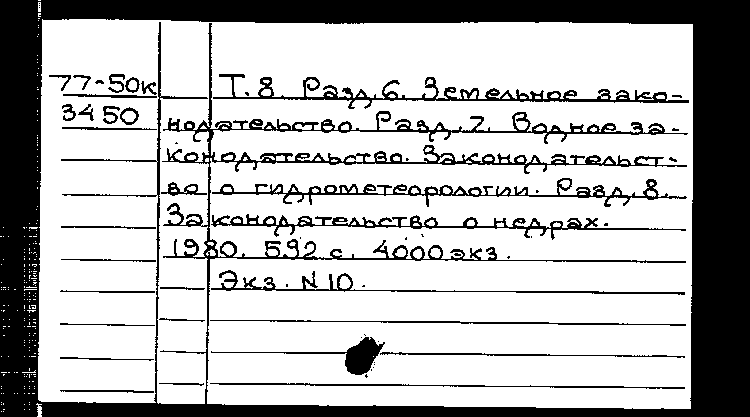 77-50к
3450
Т.8. Разд.6. Земельное зако-
нодательство. Разд.7. Водное за-
конодательство. Законодательст-
во о гидрометеорологии. Разд.8.
Законодательство о недрах.
1980. 592 с. 4000 экз.
Экз. N 10.